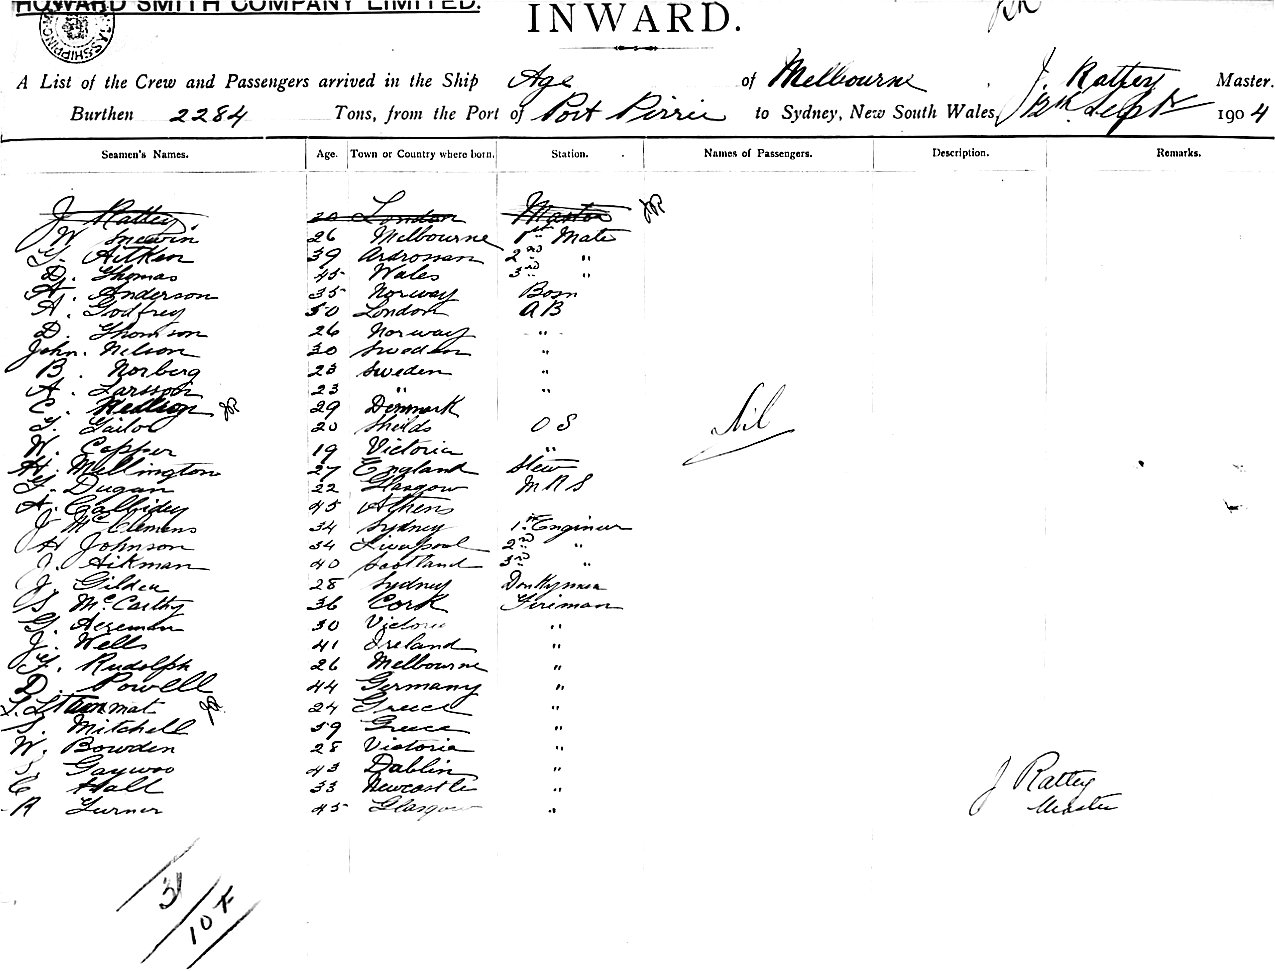 HOWARD SMITH COMPANY LIMITED.
INWARD.
A List of the Crew and Passengers arrived in the Ship Age of Melbourne, J. Rattey Master.
Burthen 2284 Tons, from the Port of Port Pirrie to Sydney, New South Wales, 12th Septr 1904
Seamen's Names. Age. Town or Country where born. Station. Names of Passengers. Description. Remarks.
J Rattey. London Master JR
W 26 Melbourne 1st Mate
G. Aitken 39 Ardrossan 2nd "
D. Thomas 45 Wales 3rd "
A. Anderson 35 Norway Bosn
A. Godfrey 50 London AB
D. Thomson 26 Norway "
John. Nelson 30 Sweden "
B. Norberg 23 Sweden "
A. Larsson 23 " "
C. JR 29 Denmark
T. Tailor 20 Shields OS
W. Copper 19 Victoria "
H. Mullington 27 England Stew
T. Dugan 22 Glasgow M R S
A. 45 Athens
J McClemens 34 Sydney 1st Engineer
H Johnson 34 Liverpool 2nd "
J. Aikman 40 Scotland 3rd "
J. Gilden 28 Sydney Donkyman
S McCarthy 36 Cork Fireman
G. Ageman 30 Victoria "
J. Wells 41 Ireland "
F. Rudolph 26 Melbourne "
D. Powell 44 Germany "
mat JR 24 Greece "
S. Mitchell 39 Greece "
W. Bowden 28 Victoria "
Gaywoo 43 Dublin "
C Hall 33 Newcastle "
R Turner 45 Glasgow "
Nil
J Rattey
Master
31
10 F